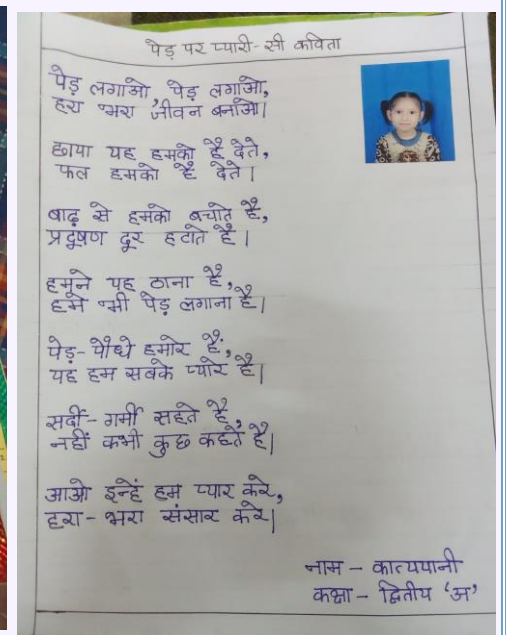 पेड़ पर प्यारी-सी कविता
पेड़ लगाओ, पेड़ लगाओ,
हरा भरा जीवन बनाओ।
छाया यह हमको है देते,
फल हमको है देते।
बाढ़ से हमको बचाते है,
प्रदूषण दूर हटाते है।
हमने यह ठाना है,
हमे भी पेड़ लगाना है।
पेड़-पौधे हमारे है,
यह हम सबके प्यारे है।
सर्दी-गर्मी सहते है,
नहीं कभी कुछ कहते है।
आओ इन्हें हम प्यार करे,
हरा-भरा संसार करे।
नाम - कात्ययानी
कक्षा - द्वितीय 'अ'